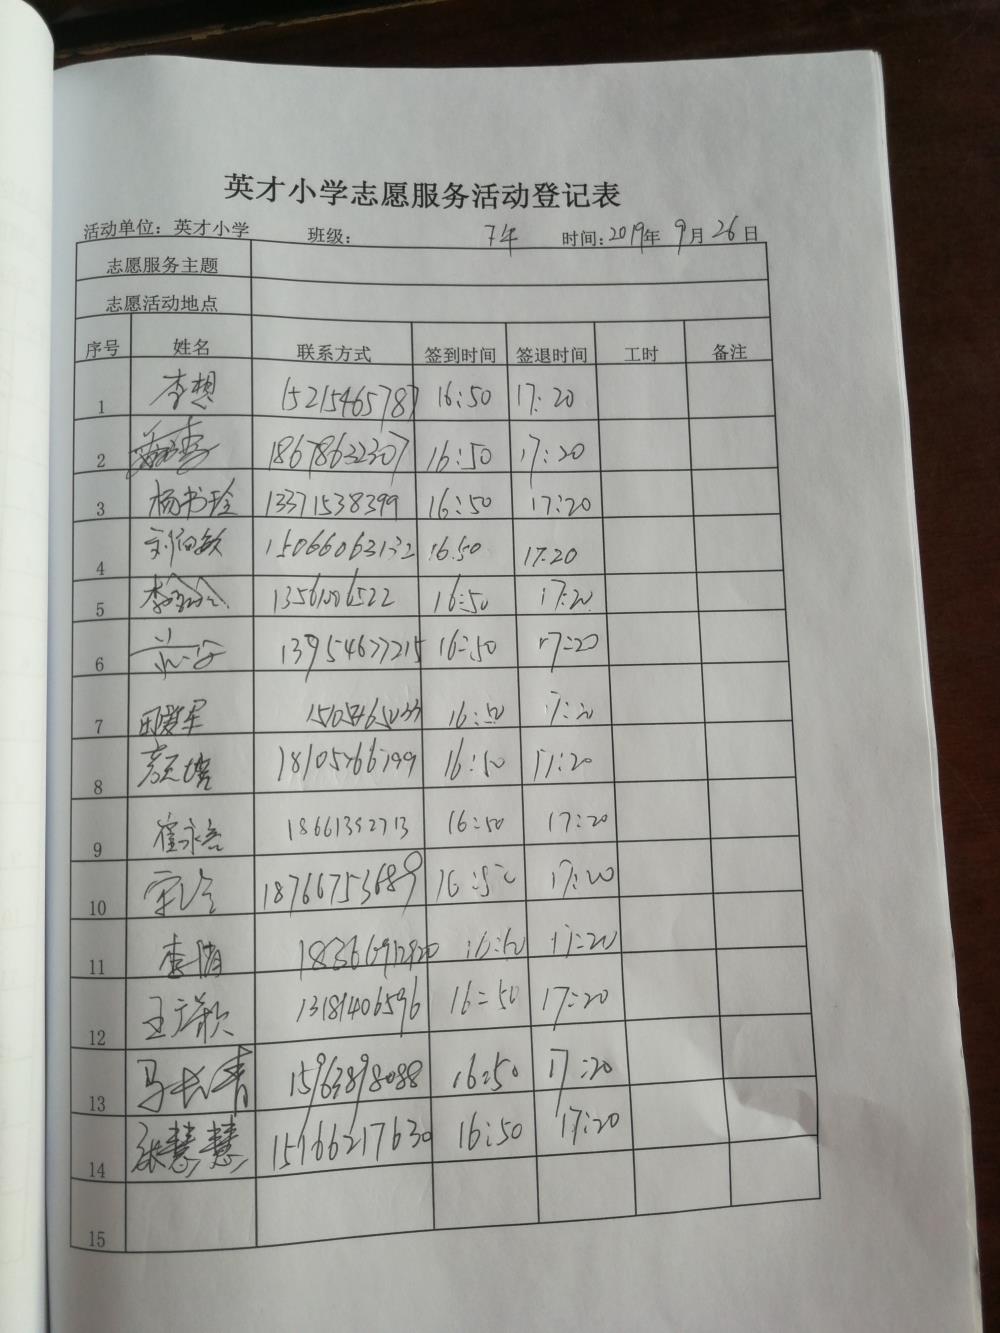 英才小学志愿服务活动登记表
活动单位：英才小学 班级： 时间：2019年 9月 26日
志愿服务主题
志愿活动地点
序号 姓名 联系方式 签到时间 签退时间 工时 备注
1 李想 15215465787 16:50 17:20
2 18678632307 16:50 17:20
3 杨书玲 13371538399 16:50 17:20
4 15066063132 16:50 17:20
5 16:50 17:20
6 13954677215 16:50 17:20
7 16:50 17:20
8 16:50 17:20
9 18661392713 16:50 17:20
10 宋 18766753689 16:50 17:20
11 李 16:50 17:20
12 王 13181406596 16:50 17:20
13 马长青 15963898088 16:50 17:20
14 张慧慧 15166217630 16:50 17:20
15